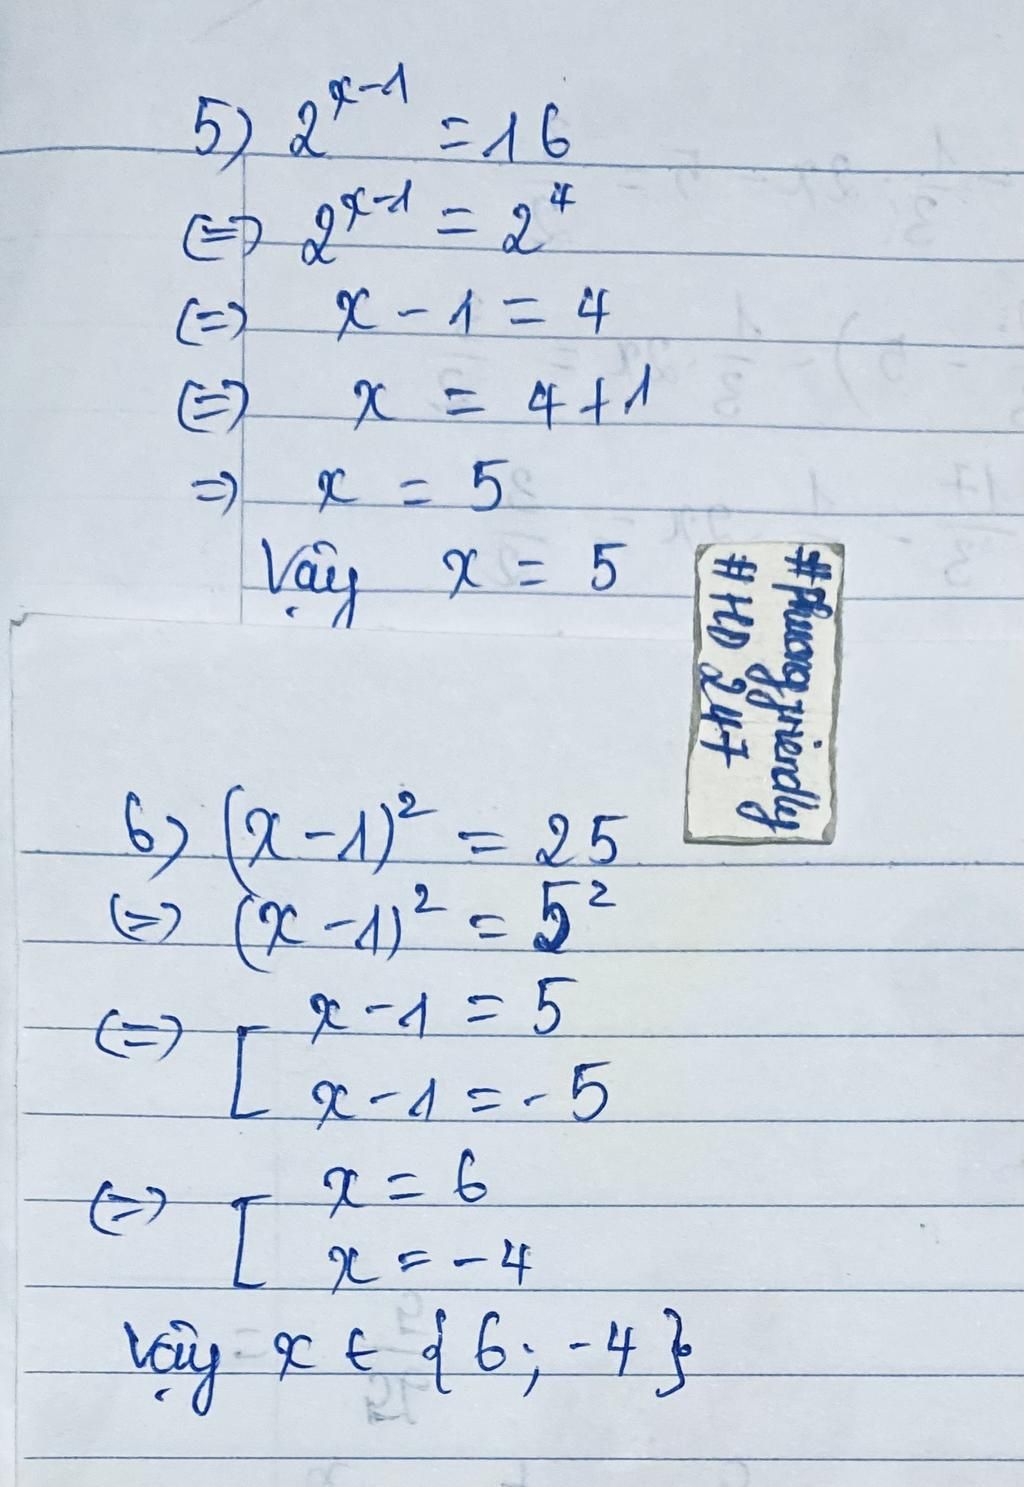 5) 2^{x-1} = 16
(=) 2^{x-1} = 2^4
(=) x - 1 = 4
(=) x = 4 + 1
=) x = 5
Vậy x = 5
#phuongfriendly
#HD 247
6) (x - 1)² = 25
(=) (x - 1)² = 5²
(=) [ x - 1 = 5
x - 1 = - 5
(=) [ x = 6
x = - 4
Vậy x ∈ {6; -4}